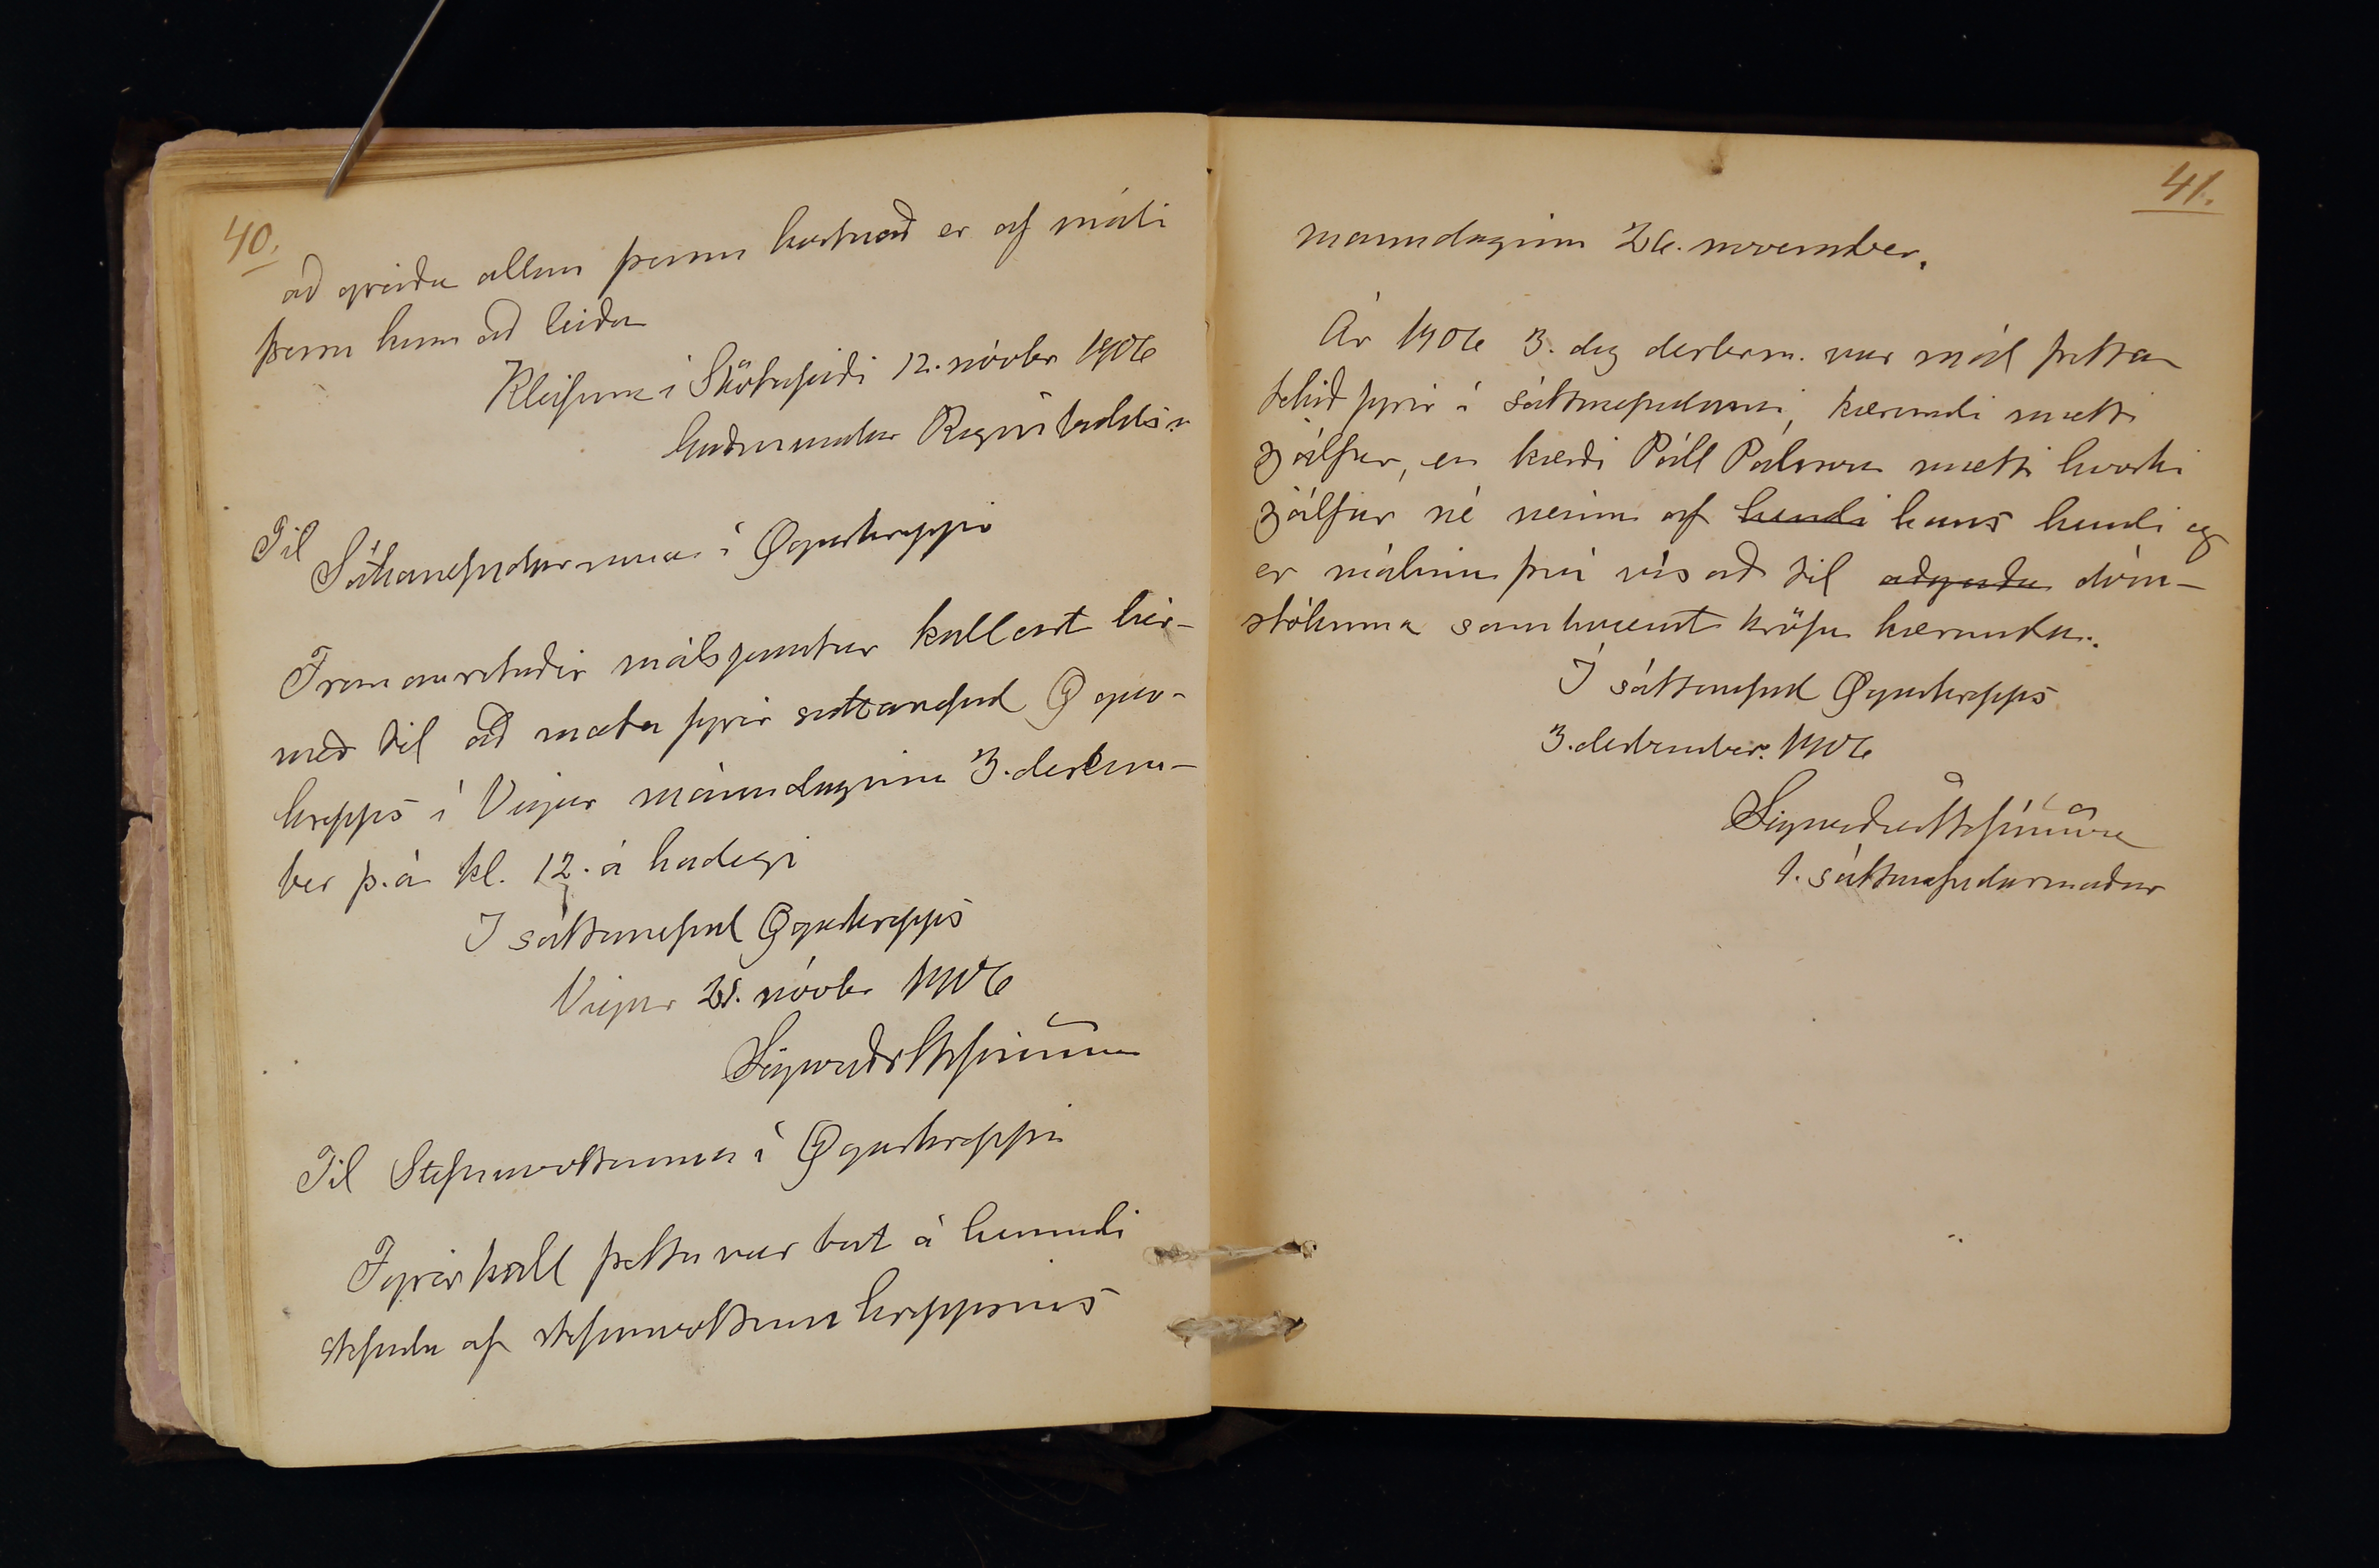 40.
að greiða allan þann kostnað er af máli
þessu kann að leiða
Kleifum í Skötufirði 12. nóvbr 1906
Guðmundur Rögnvaldss.
Til
Sáttanefndarinnar í Ögurhreppi
Framanritaðir málspartar kallast hér-
með til að mæta fyrir sáttanefnd Ögur-
hrepps í Vigur mánudaginn 3. desem-
ber þ.á kl. 12. á hádegi
Í sáttanefnd Ögurhrepps
Vigur 21. nóvbr 1906
Sigurður Stefánsson
Til Stefnuvottanna í Ögurhreppi
Fyrirkall þetta var birt á hendi
stefnda af stefnuvottum hreppsins
41.
mánudaginn 26. november.
Ár 1906 3. dag desberm. var mál þetta
tekið fyrir í sáttanefndinni, kærandi mætti
sjálfur, en kærði Páll Pálsson mætti hvorki
sjálfur né neinn af hendi hans hendi og
er málinu því vísað til aðgerða dóm-
stólanna samkvæmt kröfu kæranda.
Í sáttanefnd Ögurhrepps
3. desember. 1906
Sigurður Stefánsson
1. sáttanefndarmaður